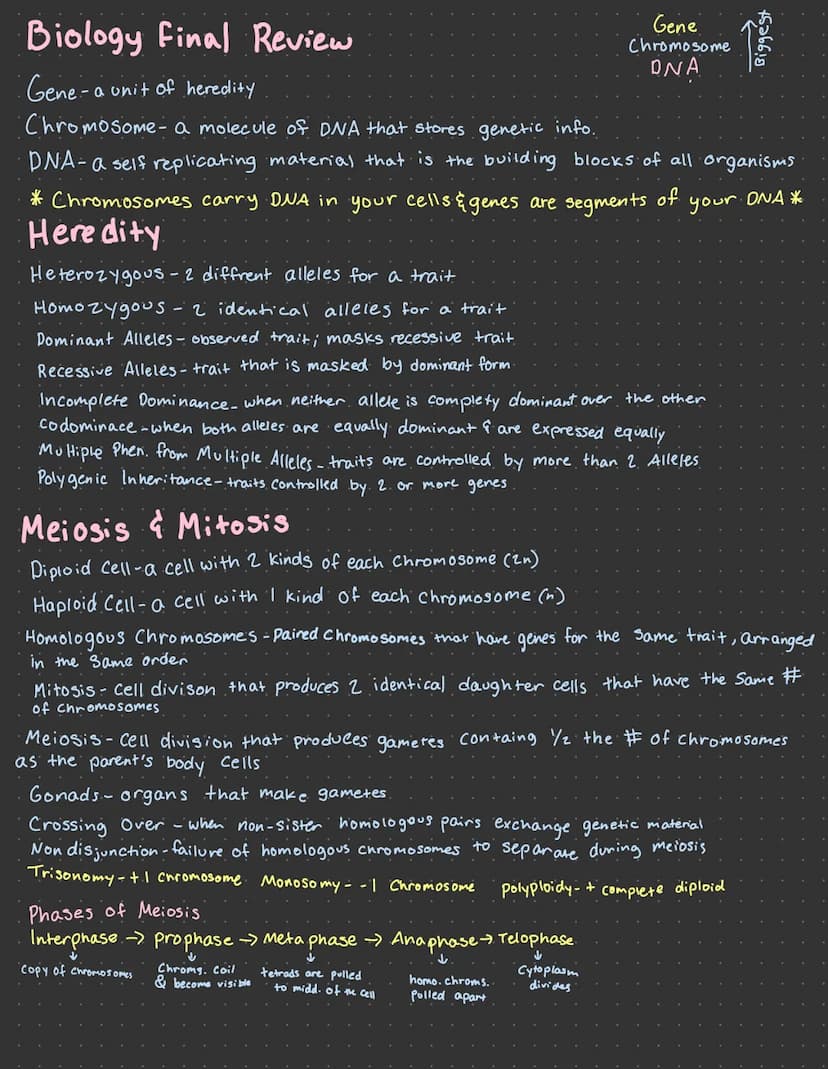 Biology Final Review
Gene
Chromosome
DNA
Biggest
Gene - a unit of heredity
Chromosome - a molecule of DNA that stores genetic info.
DNA - a self replicating material that is the building blocks of all organisms
* Chromosomes carry DNA in your cells & genes are segments of your DNA *
Heredity
Heterozygous - 2 diffrent alleles for a trait
Homozygous - 2 identical alleles for a trait
Dominant Alleles - observed trait; masks recessive trait
Recessive Alleles - trait that is masked by dominant form
Incomplete Dominance - when neither allele is complety dominant over the other
Codominace - when both alleles are equally dominant & are expressed equally
Multiple Phen. from Multiple Alleles - traits are controlled by more than 2 Alleles
Polygenic Inheritance - traits controlled by 2 or more genes
Meiosis & Mitosis
Diploid Cell - a cell with 2 kinds of each chromosome (2n)
Haploid Cell - a cell with 1 kind of each chromosome (n)
Homologous Chromosomes - Paired Chromosomes that have genes for the same trait, arranged
in the same order
Mitosis - cell divison that produces 2 identical daughter cells that have the same #
of chromosomes
Meiosis - cell division that produces gametes containg 1/2 the # of chromosomes
as the parent's body cells
Gonads - organs that make gametes
Crossing Over - when non-sister homologous pairs exchange genetic material
Non disjunction - failure of homologous chromosomes to separate during meiosis
Trisonomy - +1 chromosome Monosomy - -1 Chromosome polyploidy - + complete diploid
Phases of Meiosis
Interphase -> prophase -> Metaphase -> Anaphase -> Telophase
↓ ↓ ↓ ↓ ↓
Copy of chromosomes
Chroms. coil
& become visible
tetrads are pulled
to midd. of the cell
homo. chroms.
pulled apart
Cytoplasm
divides